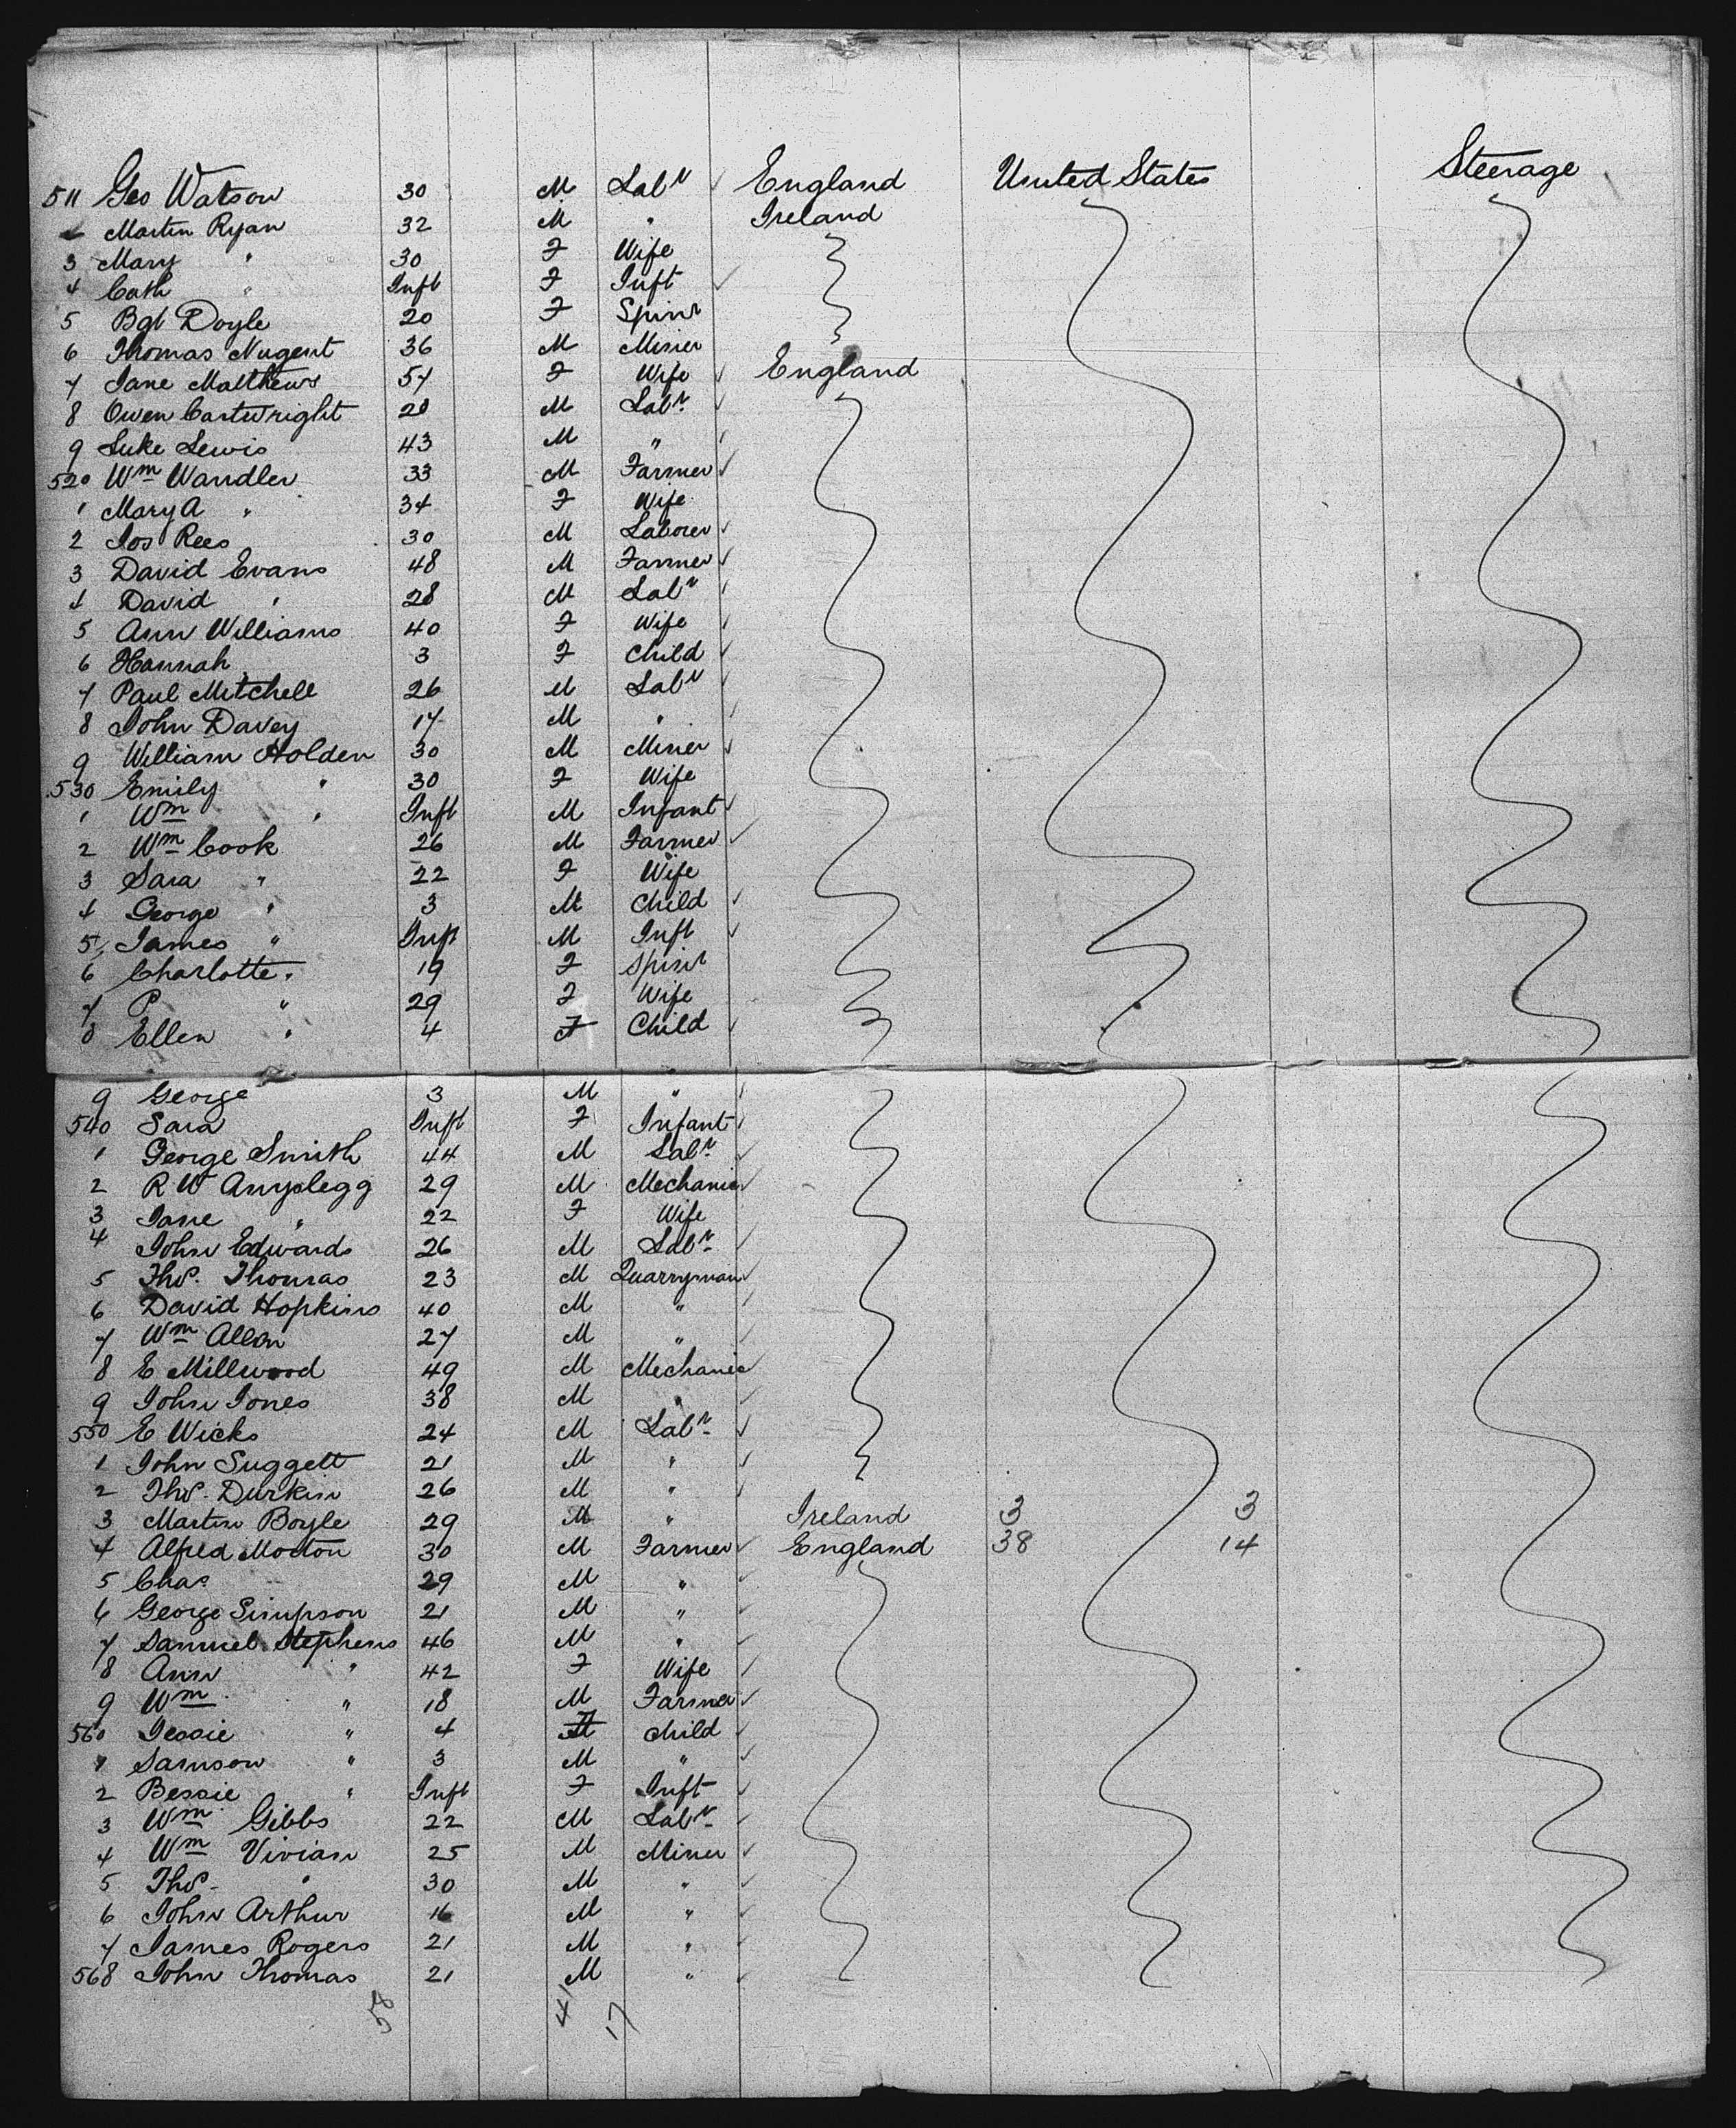 511 Geo Watson 30 M Labr England United States Steerage
Martin Ryan 32 M " Ireland
3 Mary " 30 F Wife
4 Cath " Inft F Inft
5 Bgt Doyle 20 F Spinr
6 Thomas Nugent 36 M Miner
7 Jane Matthews 57 F Wife England
8 Owen Cartwright 28 M Labr
9 Luke Lewis 43 M "
520 Wm Wandler 33 M Farmer
1 Mary A " 34 F Wife
2 Jos Rees 30 M Laborer
3 David Evans 48 M Farmer
4 David " 28 M Labr
5 Ann Williams 40 F Wife
6 Hannah 3 F Child
7 Paul Mitchell 26 M Labr
8 John Davey 17 M "
9 William Holden 30 M Miner
530 Emily " 30 F Wife
1 Wm " Inft M Infant
2 Wm Cook 26 M Farmer
3 Sara " 22 F Wife
4 George " 3 M Child
5 James " Inft M Inft
6 Charlotte " 19 F Spinr
7 P " 29 F Wife
8 Ellen " 4 F Child
9 George 3 M "
540 Sara Inft F Infant
1 George Smith 44 M Labr
2 R W Amplegg 29 M Mechanic
3 Jane " 22 F Wife
4 John Edwards 26 M Labr
5 Thos. Thomas 23 M Quarryman
6 David Hopkins 40 M "
7 Wm Allen 27 M "
8 E Millwood 49 M Mechanic
9 John Jones 38 M "
550 E Wicks 24 M Labr
1 John Suggett 21 M "
2 Thos. Durkin 26 M "
3 Martin Boyle 29 M " Ireland 3 3
4 Alfred Morton 30 M Farmer England 38 14
5 Chas 29 M "
6 George Simpson 21 M "
7 Samuel Stephens 46 M "
8 Ann " 42 F Wife
9 Wm " 18 M Farmer
560 Jessie " 4 F Child
1 Samson " 3 M "
2 Bessie " Inft F Inft
3 Wm Gibbs 22 M Labr
4 Wm Vivian 25 M Miner
5 Thos " 30 M "
6 John Arthur 16 M "
7 James Rogers 21 M "
568 John Thomas 21 M "
58 41 17